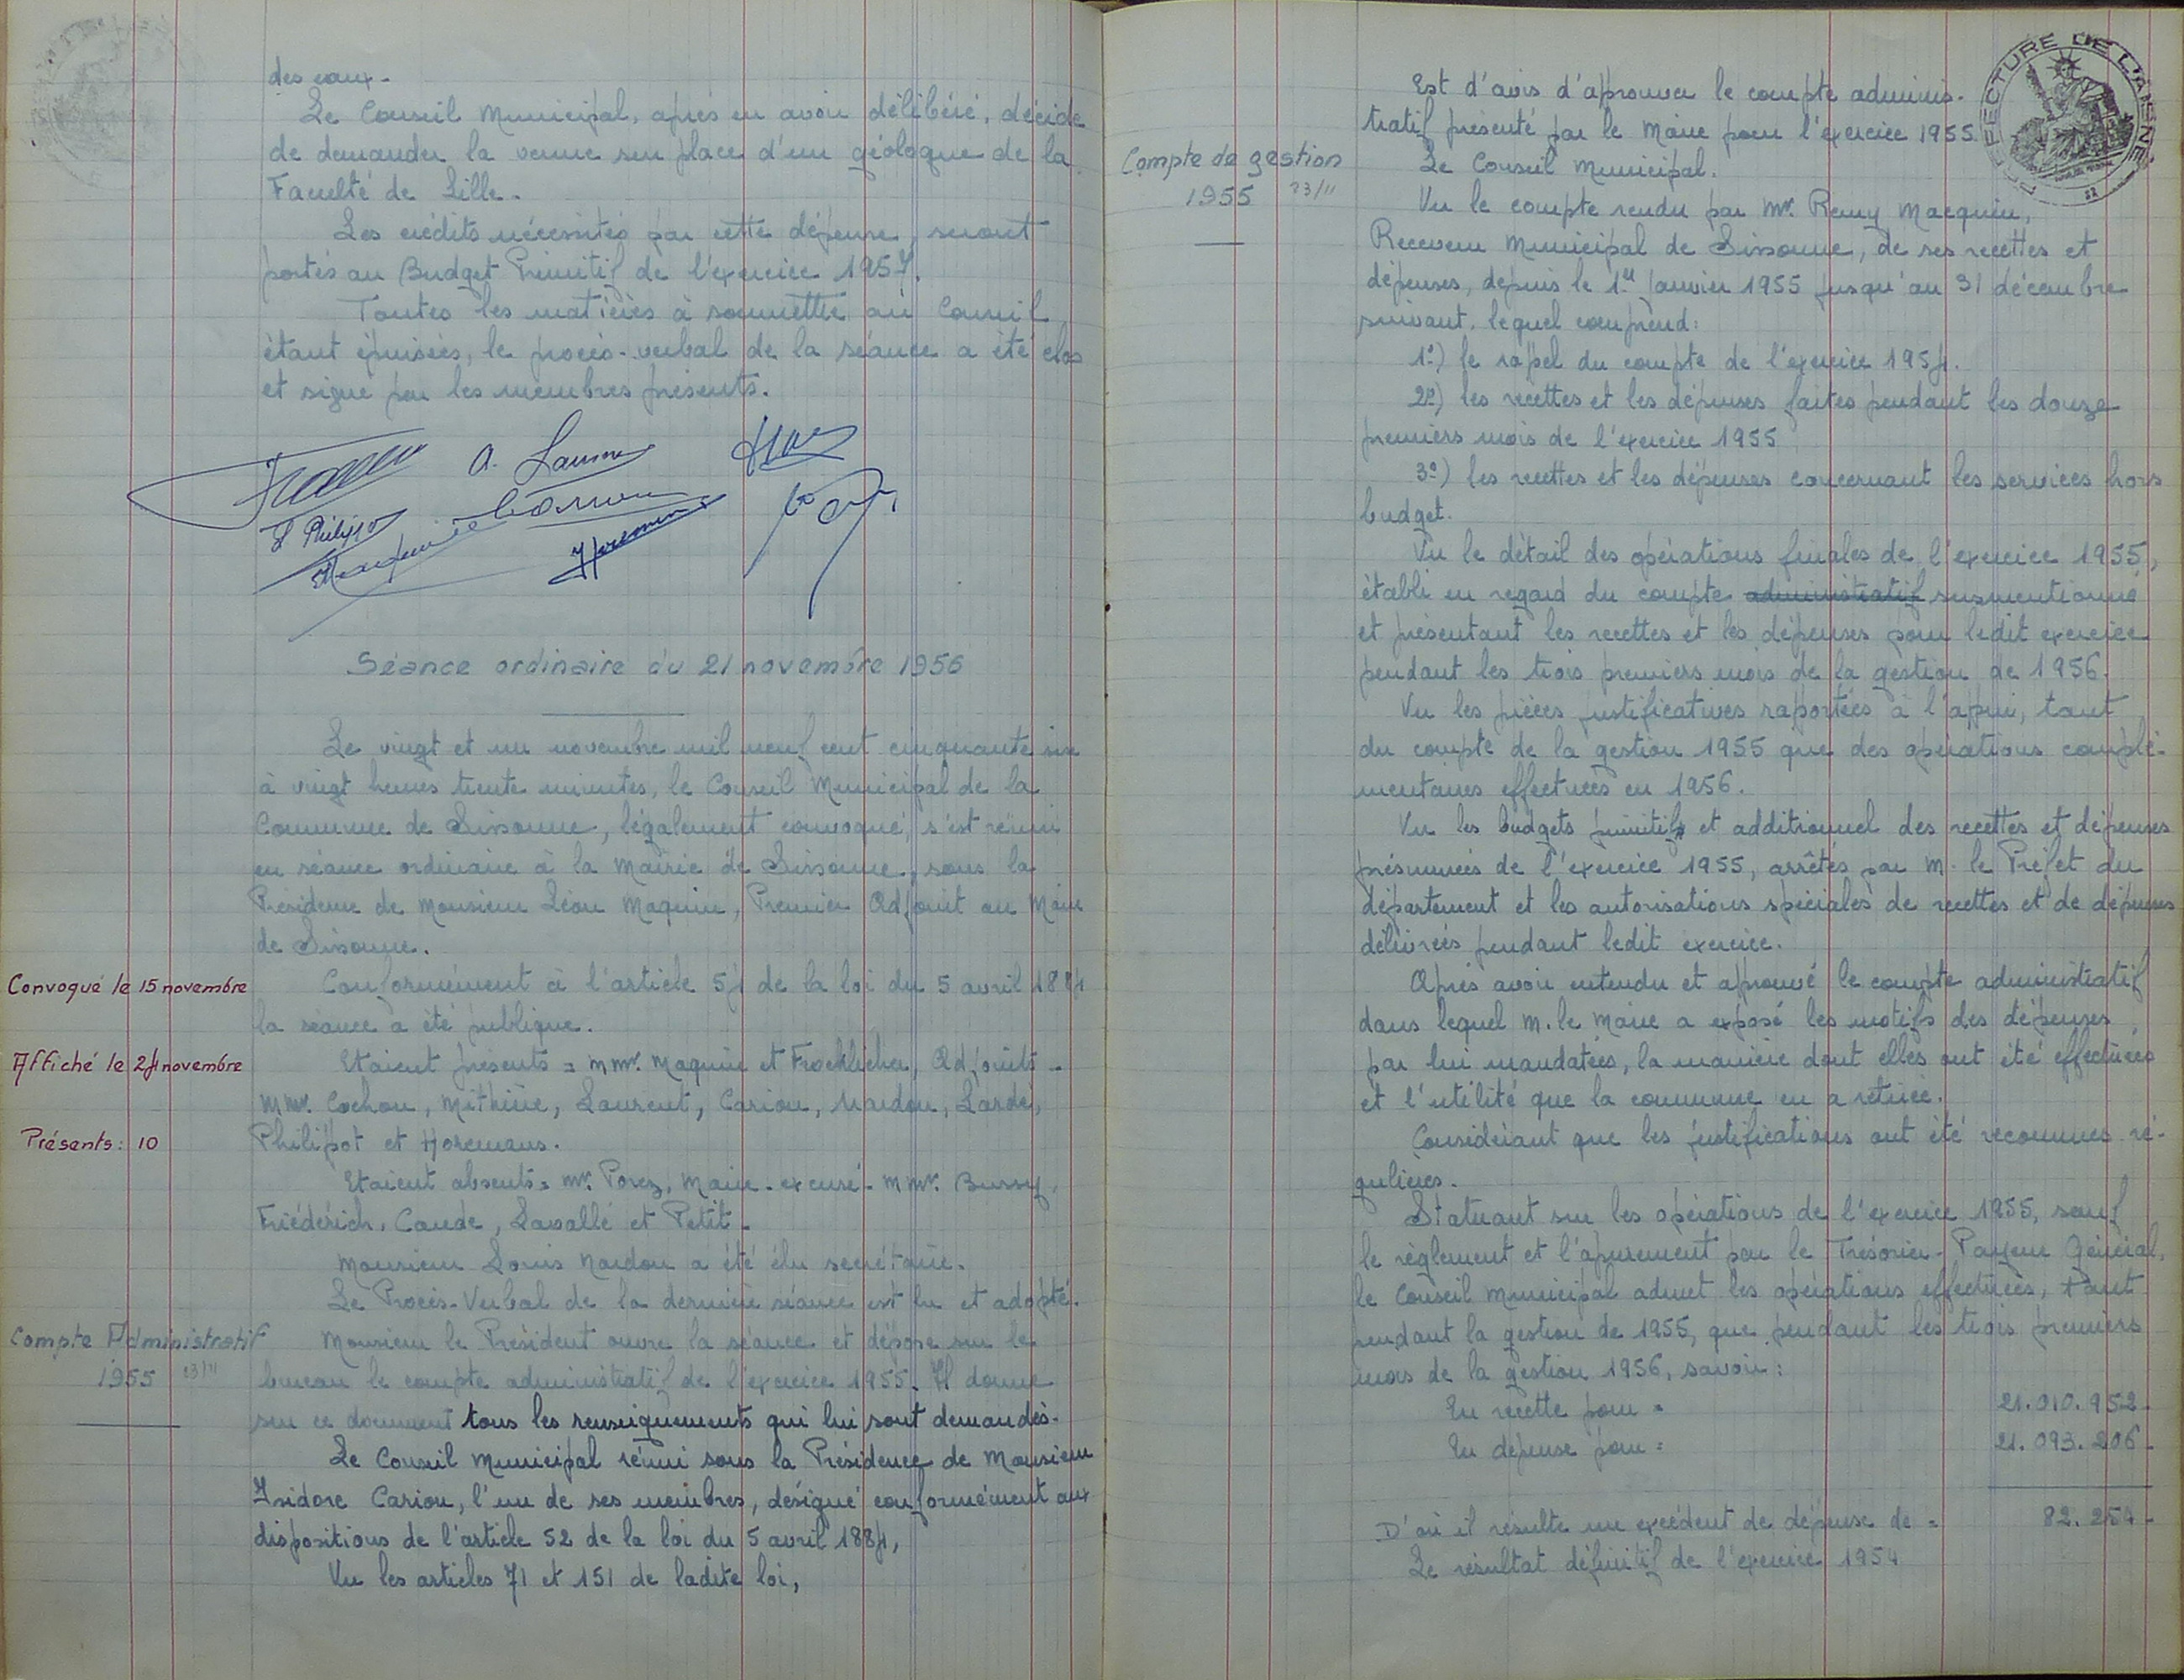 des eaux.
Le Conseil Municipal, après en avoir délibéré, décide
de demander la venue sur place d'un géologue de la
Faculté de Lille.
Les crédits nécessités par cette dépense, seront
portés au Budget Primitif de l'exercice 1957.
Toutes les matières à soumettre au Conseil
étant épuisées, le procès-verbal de la séance a été clos
et signé par les membres présents.
Séance ordinaire du 21 novembre 1956
Le vingt et un novembre mil neuf cent cinquante six
à vingt heures trente minutes, le Conseil Municipal de la
Commune de Sissonne, légalement convoqué, s'est réuni
en séance ordinaire à la Mairie de Sissonne, sous la
Présidence de Monsieur Léon Maquin, Premier Adjoint au Maire
de Sissonne.
Convoqué le 15 novembre
Conformément à l'article 54 de la loi du 5 avril 1884
la séance a été publique.
Affiché le 24 novembre
Etaient présents = MMr. Maquin et Froehlicher, Adjoints -
MMr. Cochon, Mithieie, Laurent, Cariou, Nardon, Lardé,
Présents : 10
Philipot et Horemans.
Etaient absents = Mr. Porez, Maire - excusé - MMr. Bussy,
Friédérich, Caude, Lavallé et Petit.
Monsieur Louis Nardon a été élu secrétaire.
Le Procès-Verbal de la dernière séance est lu et adopté.
Compte Administratif
1955 23/11
Monsieur le Président ouvre la séance et dépose sur le
bureau le compte administratif de l'exercice 1955. Il donne
sur ce document tous les renseignements qui lui sont demandés.
Le Conseil Municipal réuni sous la Présidence de Monsieur
Isidore Cariou, l'un de ses membres, désigné conformément aux
dispositions de l'article 52 de la loi du 5 avril 1884,
Vu les articles 71 et 151 de ladite loi,
PREFECTURE DE L'AISNE
Est d'avis d'aprouver le compte adminis-
tratif présenté par le Maire pour l'exercice 1955.
Compte de gestion
1955 23/11
Le Conseil Municipal.
Vu le compte rendu par Mr. Remy Macquin,
Receveur Municipal de Sissonne, de ses recettes et
dépenses, depuis le 1er Janvier 1955 jusqu'au 31 décembre
suivant, lequel comprend :
1º) le rapel du compte de l'exercice 1954.
2º) les recettes et les dépenses faites pendant les douze
premiers mois de l'exercice 1955
3º) les recettes et les dépenses concernant les services hors
budget.
Vu le détail des opérations finales de l'exercice 1955,
établi en regard du compte administratif susmentionné
et présentant les recettes et les dépenses pour ledit exercice
pendant les trois premiers mois de la gestion de 1956.
Vu les pièces justificatives raportées à l'apui, tant
du compte de la gestion 1955 que des opérations complé-
mentaires effectuées en 1956.
Vu les budgets primitifs et additionnel des recettes et dépenses
présumées de l'exercice 1955, arrêtés par M. le Préfet du
département et les autorisations spéciales de recettes et de dépenses
délivrées pendant ledit exercice.
Après avoir entendu et aprouvé le compte administratif
dans lequel M. le Maire a exposé les motifs des dépenses
par lui mandatées, la manière dont elles ont été effectuées
et l'utilité que la commune en a retirée.
Considérant que les justifications ont été reconnues ré-
gulières.
Statuant sur les opérations de l'exercice 1955, sauf
le règlement et l'apurement par le Trésorier-Payeur Général,
le Conseil Municipal admet les opérations effectuées, tant
pendant la gestion de 1955, que pendant les trois premiers
mois de la gestion 1956, savoir :
En recette pour = 21.010.952 -
En dépense pour = 21.093.206 -
D'où il résulte un excédent de dépense de = 82.254 -
Le résultat définitif de l'exercice 1954